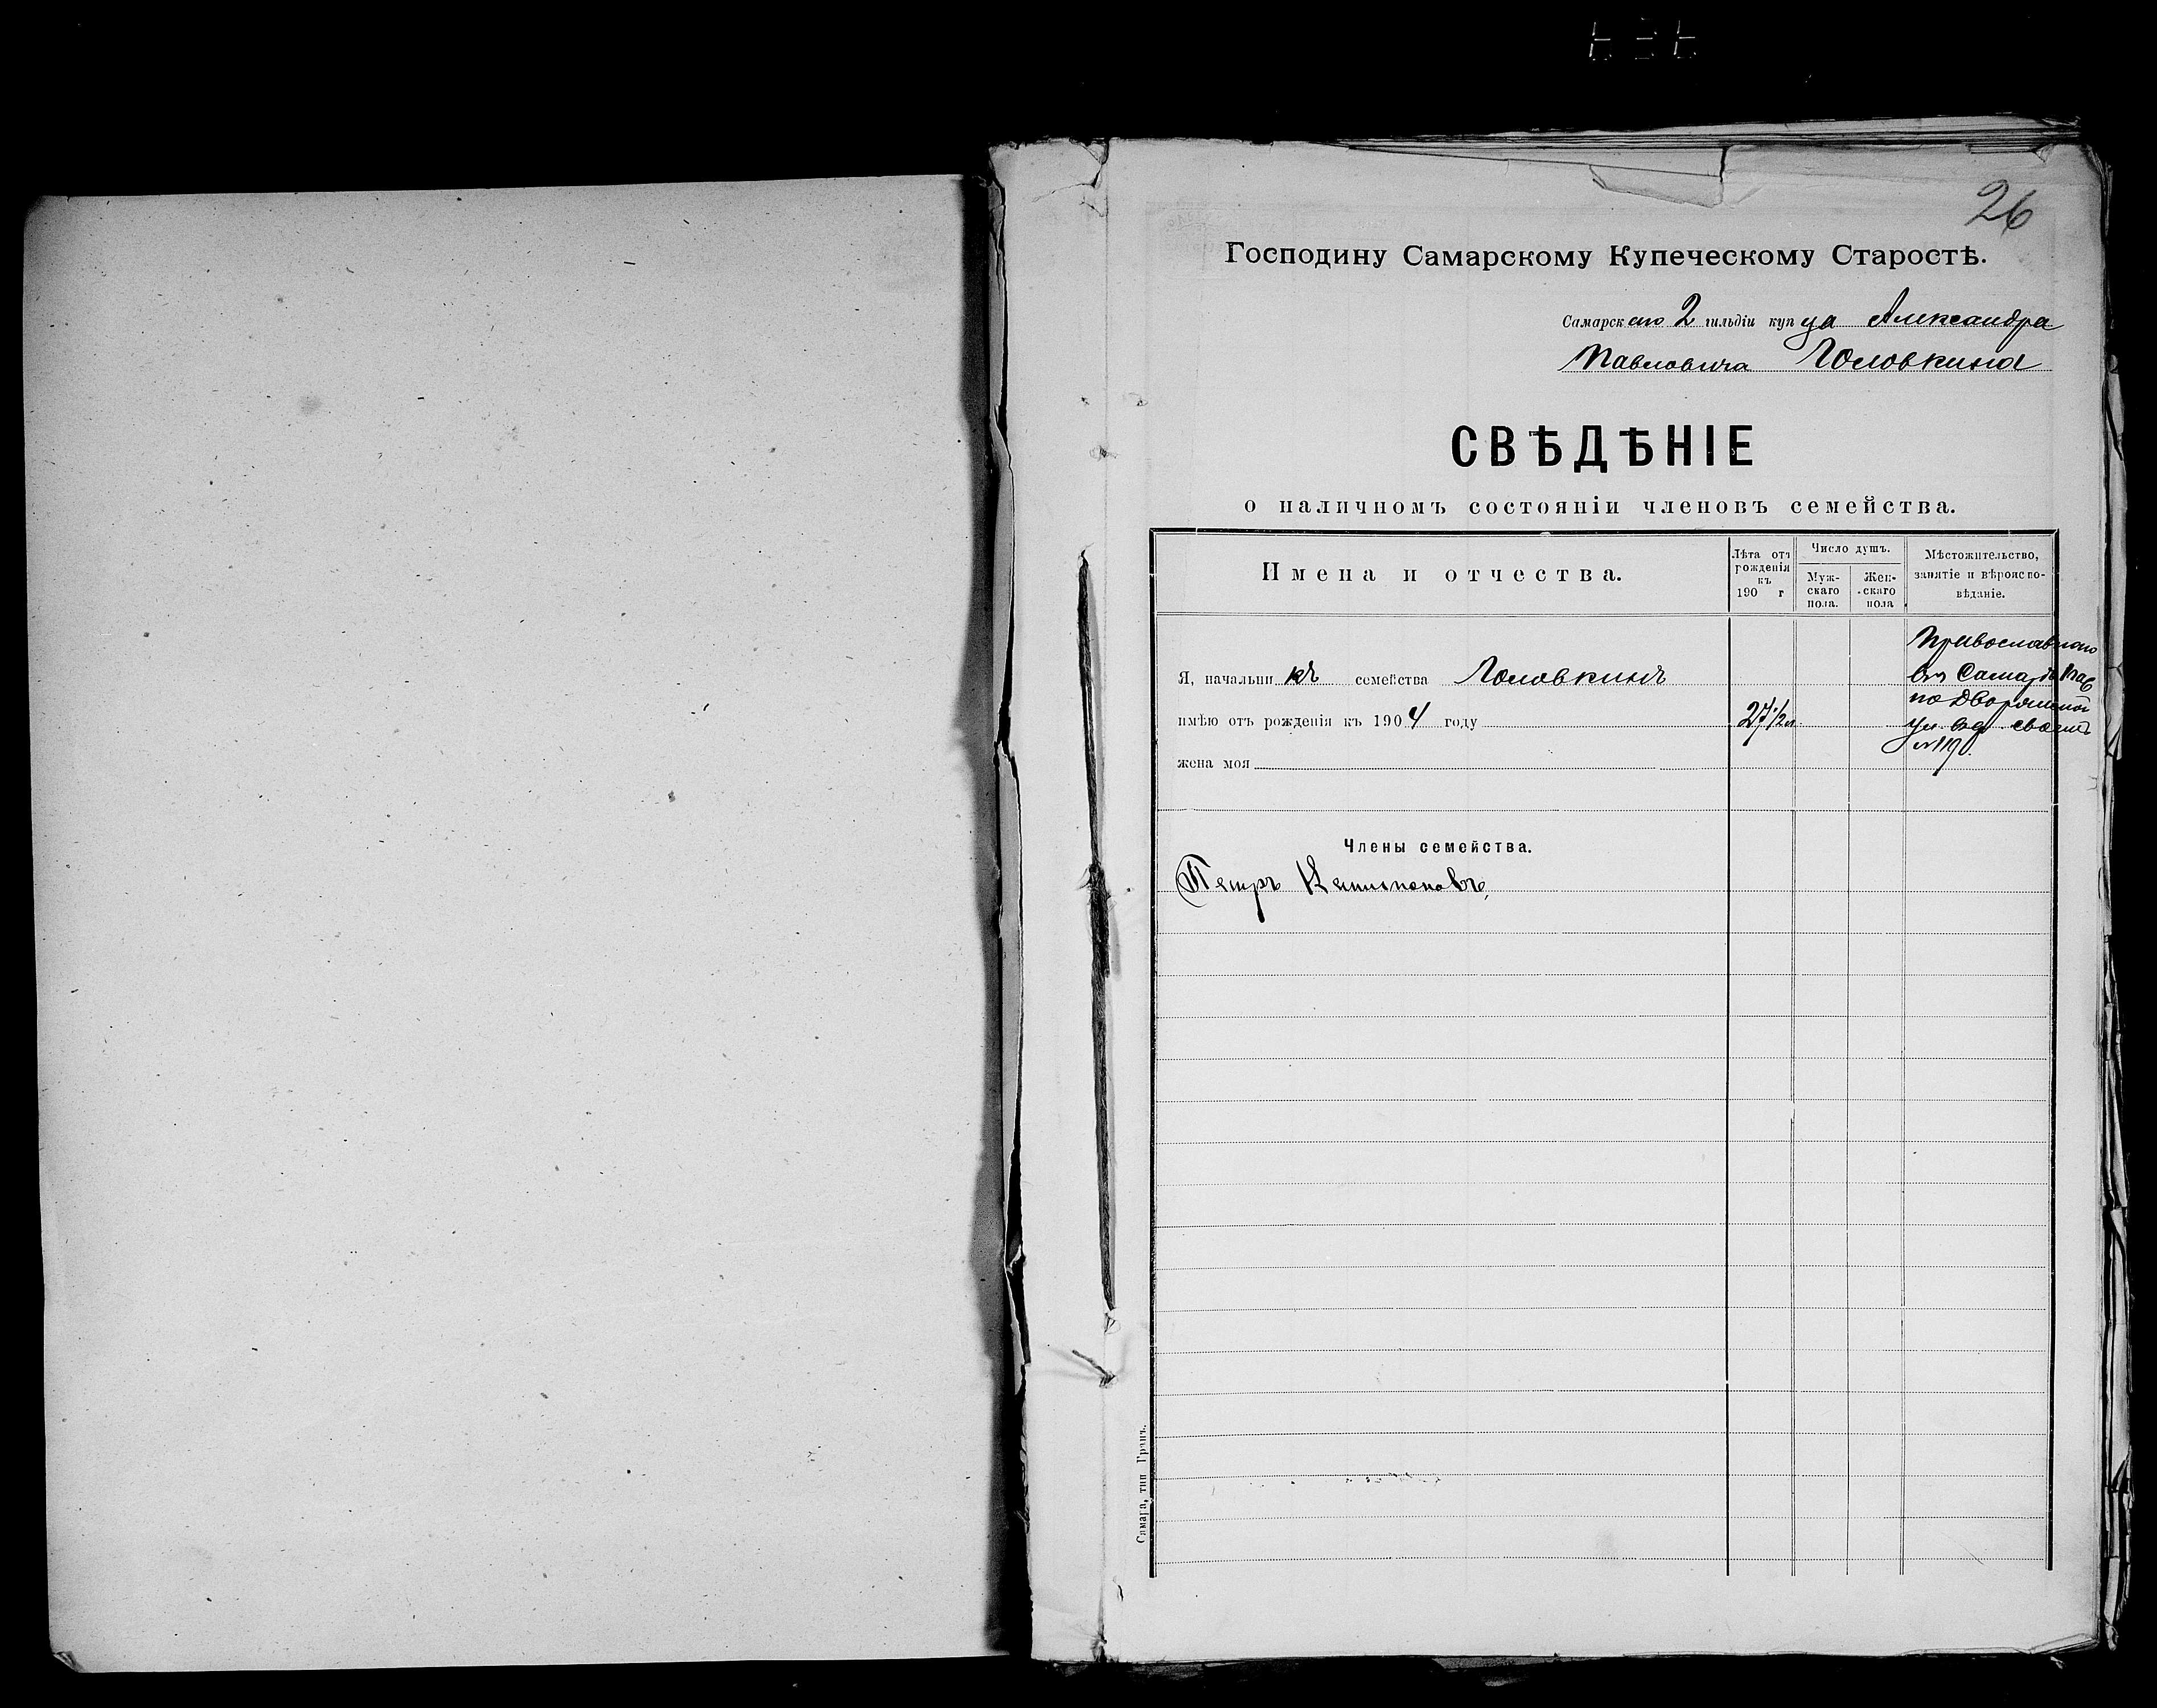 26
Господину Самарскому Купеческому Старостѣ.
Самарскаго 2 гильдіи купца Александра
Павловича Головкина
СВѢДѢНІЕ
о наличномъ состояніи членовъ семейства.
Имена и отчества.
Лѣта отъ рожденія къ 190 г
Число душъ.
Мужскаго пола.
Женскаго пола
Мѣстожительство, занятіе и вѣроисповѣданіе.
Православнаго
Я, начальникъ семейства Головкинъ
въ Самарѣ
имѣю отъ рожденія къ 1904 году 27 1/2 л
по Дворянской
ул. своемъ
жена моя
Члены семейства.
Петръ
Самара, тип Гранъ.